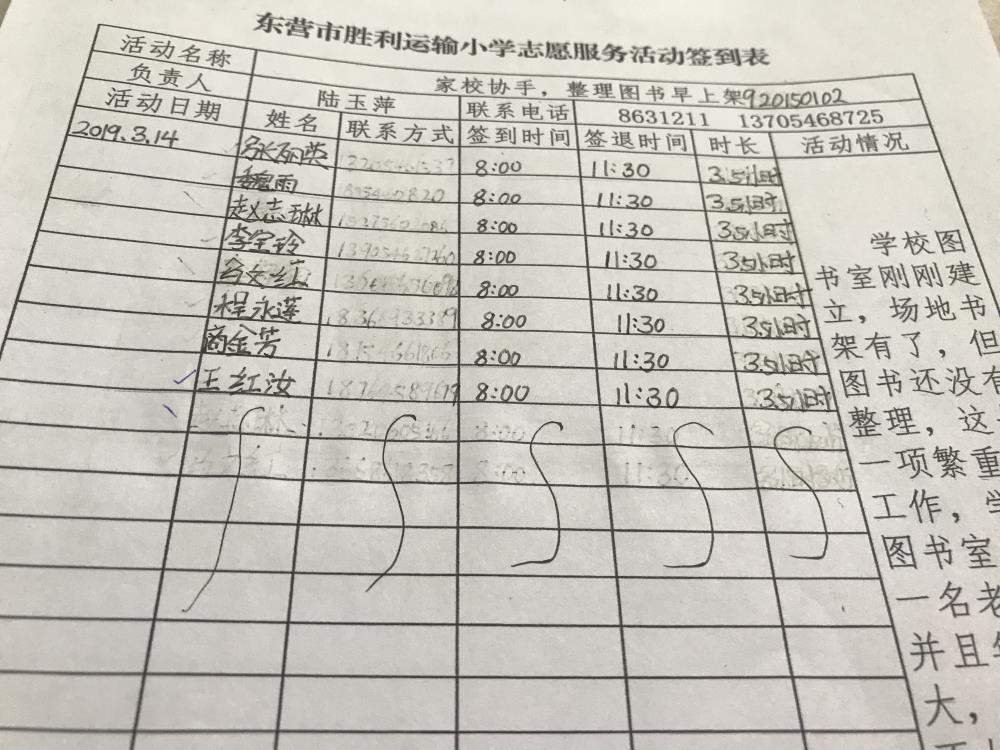 东营市胜利运输小学志愿服务活动签到表
活动名称 家校协手，整理图书早上架920150102
负责人 陆玉萍 联系电话 8631211 13705468725
活动日期 姓名 联系方式 签到时间 签退时间 时长 活动情况
2019.3.14 张丽荣 8:00 11:30 3.5小时
魏雨 8:00 11:30 3.5小时
赵志琳 8:00 11:30 3.5小时
李宝玲 8:00 11:30 3.5小时
吕文红 8:00 11:30 3.5小时
程永莲 8:00 11:30 3.5小时
商金芳 8:00 11:30 3.5小时
王红汝 8:00 11:30 3.5小时
8:00 11:30
8:00 11:30
学校图
书室刚刚建
立，场地书
架有了，但
图书还没有
整理，这
一项繁重
工作，学
图书室
一名老
并且
大，